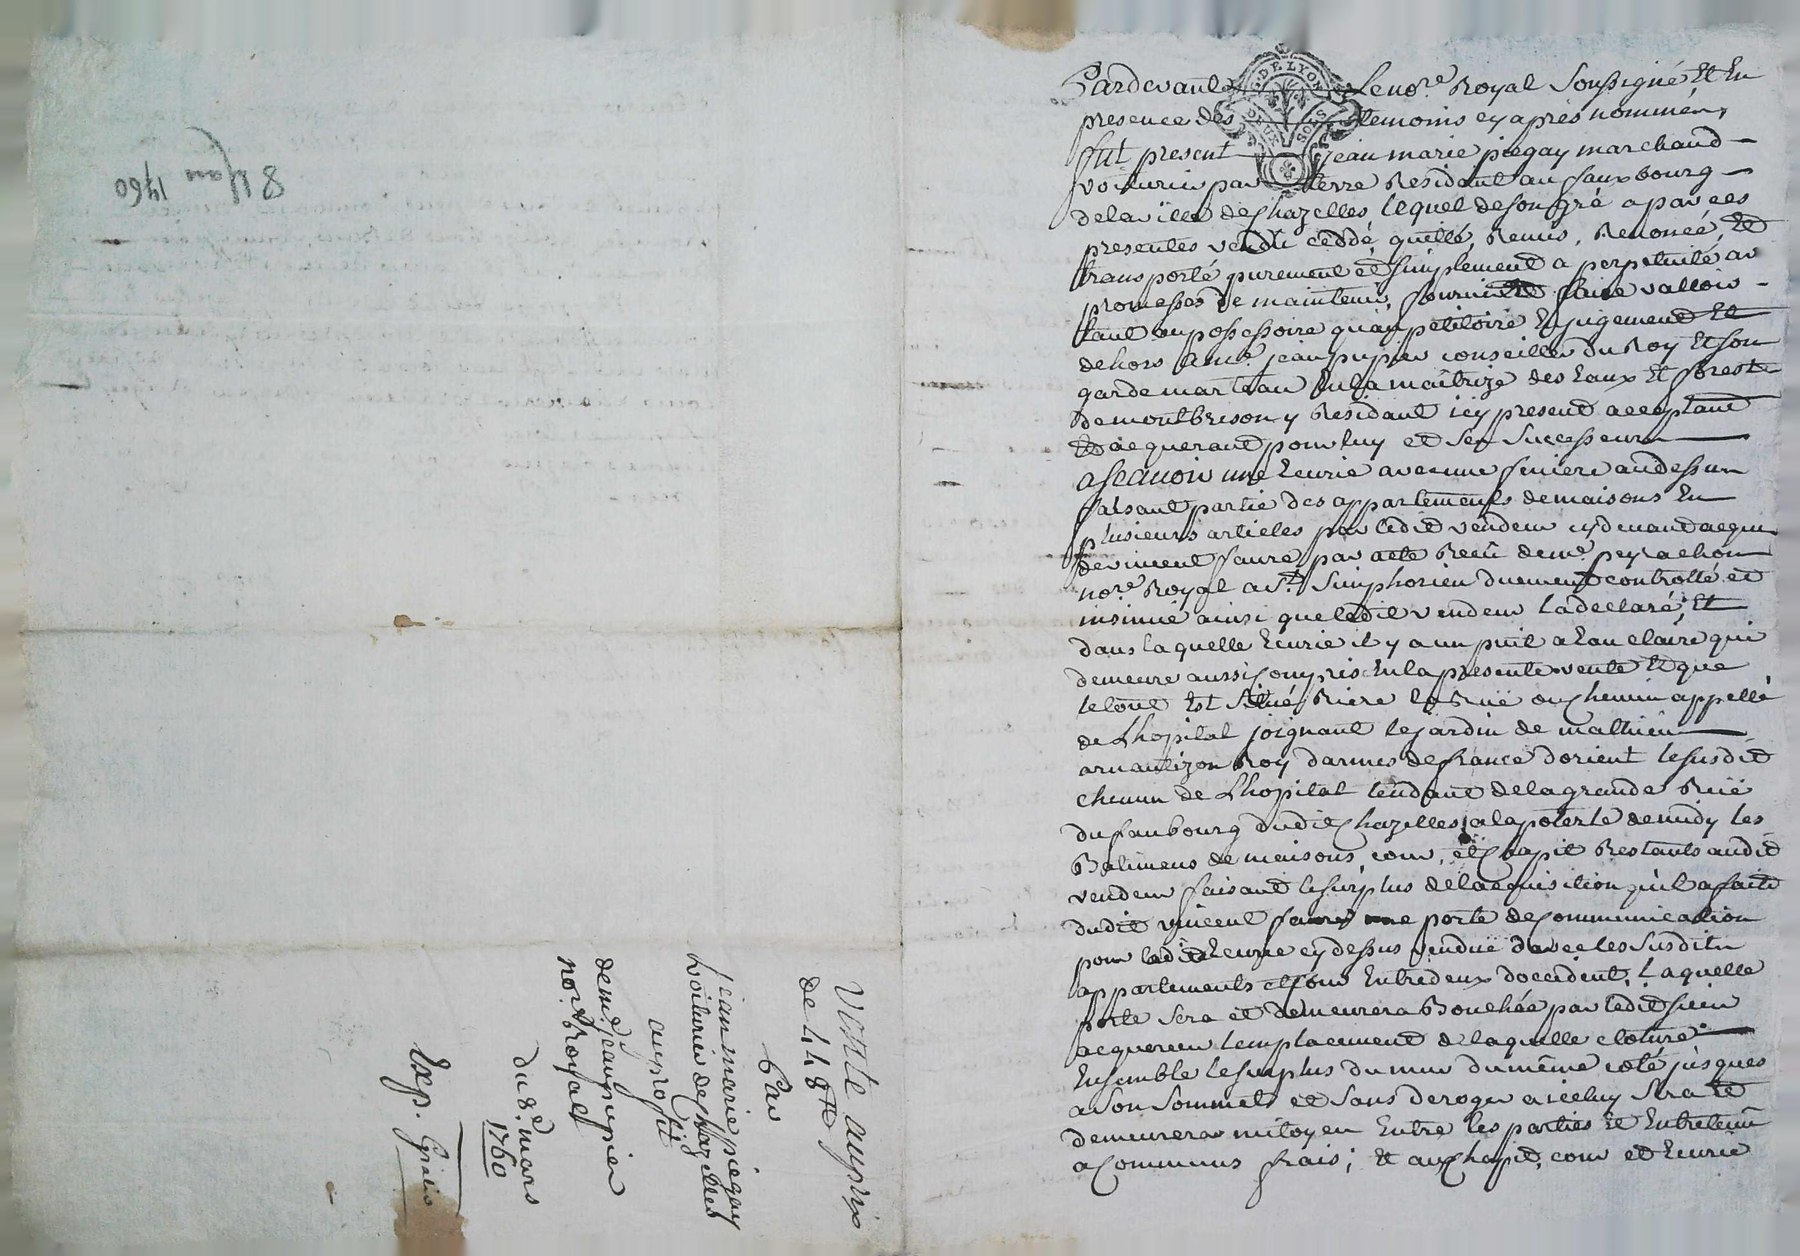 8 Mars 1760
Vente au prix
de 448 ₶
Par
jean marie piegay
voiturier de Chazelles
au profit
de me. jean pupier
nore. Royal
du 8e. mars
1760
Exp.
G. DE LYON
DEUX SOLS
Pardevant Le nore. Royal Soussigné Et En
presence des temoins cy aprés nommés,
fut present jean marie piegay marchand
voiturier par terre Residant au fauxbourg
de la ville de Chazelles, lequel de son gré a par ces
presentes vendu ceddé, quitté, Remis, Renoncé, Et
transporté purement et simplement a perpetuité av
promesses de maintenir, fournir Et faire valloir
tant au possessoire qu'au petitoire En jugement Et
dehors a me. jean pupier conseiller du Roy Et son
garde marteau En la maitrize des Eaux Et forests
de montbrison y Residant icy present acceptant
Et acquerant pour luy et ses Successeurs
ascavoir une Ecurie avec une feniere au dessus
faisant partie des appartements de maisons En
plusieurs articles par ledit vendeur cydevant acquis
de vincent faure par acte Recû de me. peyrachon
nore. Royal a St. Simphorien duement controllé et
insinué ainsi que ledit vendeur l'a declaré; Et
dans laquelle Ecurie il y a un puit a Eau claire qui
demeure aussi compris En la presente vente Et que
le tout Est Situé Riere la Ruë ou chemin appellé
de Lhopital joignant le jardin de mathieu
arnaud Roy d'armes de france d'orient le susdit
chemin de Lhopital tendant de la grande Ruë
du faubourg dudit Chazelles a la poterle de midy les
Batimens de maisons, cour, et Chapit Restants audit
vendeur faisant le surplus de l'acquisition qu'il a faite
dudit vincent faure une porte de Communication
pour ladite Ecurie cy dessus venduë d'avec les susdits
appartements et cour Entre deux d'occident, Laquelle
porte sera et demeurera Bouchée par ledit sieur
acquereur l'emplacement de laquelle cloture
Ensemble le surplus du mur du même coté jusques
a son sommet et sans deroger a iceluy sera Et
demeurera mitoyen Entre les parties Et Entretenu
a Communs frais; Et aux Chapit, cour et Ecurie